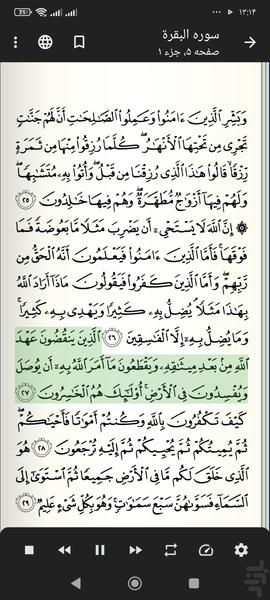 71 ۱۳:۱۴
سوره البقرة
صفحه ۵، جزء ۱
وَبَشِّرِ الَّذِينَ ءَامَنُوا وَعَمِلُوا الصَّالِحَاتِ أَنَّ لَهُمْ جَنَّاتٍ
تَجْرِي مِن تَحْتِهَا الْأَنْهَارُ كُلَّمَا رُزِقُوا مِنْهَا مِن ثَمَرَةٍ
رِّزْقًا قَالُوا هَٰذَا الَّذِي رُزِقْنَا مِن قَبْلُ وَأُتُوا بِهِ مُتَشَابِهًا
وَلَهُمْ فِيهَا أَزْوَاجٌ مُّطَهَّرَةٌ وَهُمْ فِيهَا خَالِدُونَ ﴿٢٥﴾
۞ إِنَّ اللَّهَ لَا يَسْتَحْيِ أَن يَضْرِبَ مَثَلًا مَّا بَعُوضَةً فَمَا
فَوْقَهَا فَأَمَّا الَّذِينَ ءَامَنُوا فَيَعْلَمُونَ أَنَّهُ الْحَقُّ مِن
رَّبِّهِمْ وَأَمَّا الَّذِينَ كَفَرُوا فَيَقُولُونَ مَاذَا أَرَادَ اللَّهُ
بِهَٰذَا مَثَلًا يُضِلُّ بِهِ كَثِيرًا وَيَهْدِي بِهِ كَثِيرًا
وَمَا يُضِلُّ بِهِ إِلَّا الْفَاسِقِينَ ﴿٢٦﴾ الَّذِينَ يَنقُضُونَ عَهْدَ
اللَّهِ مِن بَعْدِ مِيثَاقِهِ وَيَقْطَعُونَ مَا أَمَرَ اللَّهُ بِهِ أَن يُوصَلَ
وَيُفْسِدُونَ فِي الْأَرْضِ أُولَٰئِكَ هُمُ الْخَاسِرُونَ ﴿٢٧﴾
كَيْفَ تَكْفُرُونَ بِاللَّهِ وَكُنتُمْ أَمْوَاتًا فَأَحْيَاكُمْ
ثُمَّ يُمِيتُكُمْ ثُمَّ يُحْيِيكُمْ ثُمَّ إِلَيْهِ تُرْجَعُونَ ﴿٢٨﴾ هُوَ
الَّذِي خَلَقَ لَكُم مَّا فِي الْأَرْضِ جَمِيعًا ثُمَّ اسْتَوَىٰ إِلَى
السَّمَاءِ فَسَوَّاهُنَّ سَبْعَ سَمَاوَاتٍ وَهُوَ بِكُلِّ شَيْءٍ عَلِيمٌ ﴿٢٩﴾
بازار